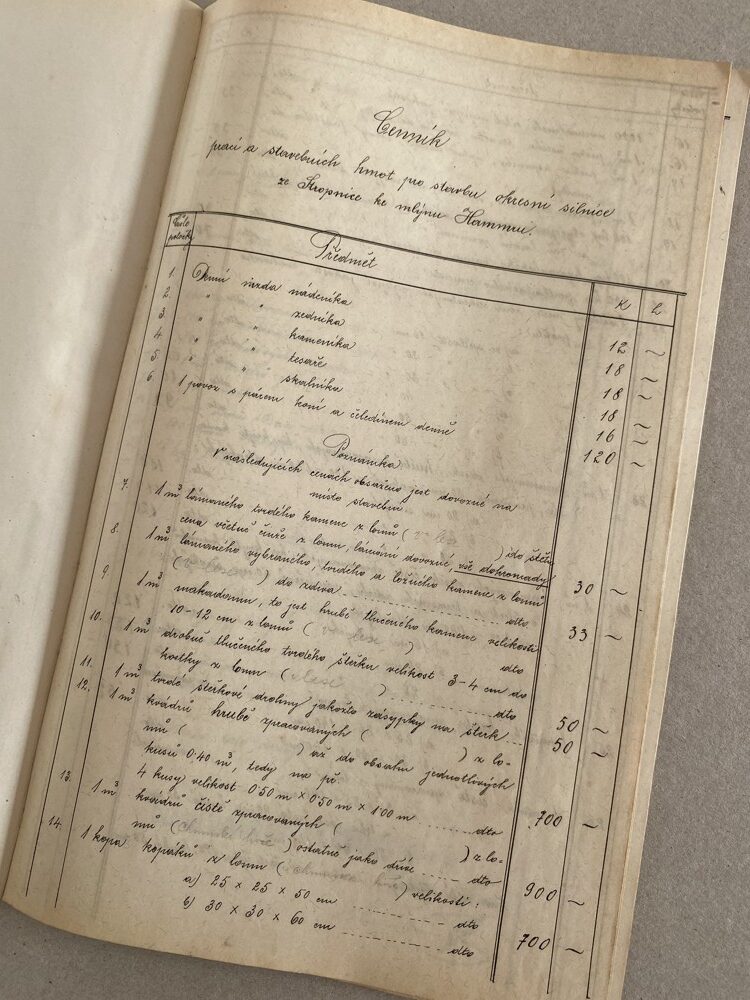 Cenník
prací a stavebních hmot pro stavbu okresní silnice
ze Stropnice ke mlýnu Hammru.
Číslo položky Předmět K h
1. Denní mzda nádeníka 12 ~
2. " " zedníka 18 ~
3. " " kameníka 18 ~
4. " " tesaře 18 ~
5. " " skalníka 16 ~
6. 1 povoz s párem koní a čeledínem denně 120 ~
Poznámka
V následujících cenách obsaženo jest dovozné na
místo stavební.
7. 1 m³ lámaného tvrdého kamene z lomů ( v lese ) do štětu
cena včetně činže z lomu, lámání dovozné, vše dohromady 30 ~
8. 1 m³ lámaného vybraného, tvrdého a ložného kamene z lomů
( ) do zdiva dto 33 ~
9. 1 m³ makadamu, to jest hrubě tlučeného kamene velikosti
10-12 cm z lomů ( v lese ) dto
10. 1 m³ drobně tlučeného tvrdého štěrku velikost 3-4 cm do
kostky z lomu ( lese ) dto 50 ~
11. 1 m³ tvrdé štěrkové drobny jakožto zásypky na štěrk 50 ~
12. 1 m³ kvádrů hrubě zpracovaných ( ) z lo-
mů ( ) až do obsahu jednotlivých
kusů 0·40 m³, tedy na př.
4 kusy velikost 0·50 m × 0·50 m × 1·00 m dto 700 ~
13. 1 m³ kvádrů čistě zpracovaných ( ) z lo-
mů ( ) ostatně jako dříve dto 900 ~
14. 1 kopa kopáků z lomu ( ) velikosti:
a) 25 × 25 × 50 cm dto 700 ~
b) 30 × 30 × 60 cm dto